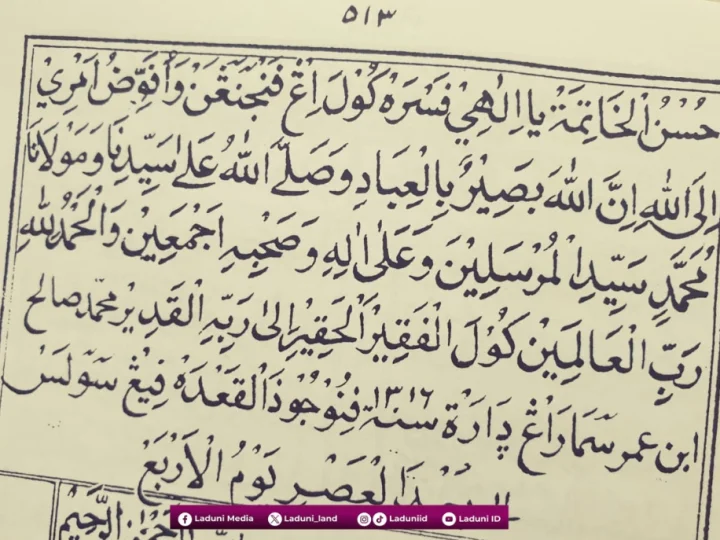 ٥١٣
حُسْنُ الْخَاتِمَةْ يَا اِلٰهِيْ فَسْرَهْ كُوْلَ اِڠْ فَنْجَنَڠَنْ وَأُفَوِّضُ اَمْرِيْ
اِلَى اللهِ اِنَّ اللهَ بَصِيْرٌ بِالْعِبَادِ وَصَلَّى اللهُ عَلٰى سَيِّدِنَا وَمَوْلَانَا
مُحَمَّدٍ سَيِّدِ الْمُرْسَلِيْنَ وَعَلٰى اٰلِهِ وَصَحْبِهِ اَجْمَعِيْنَ وَالْحَمْدُ لِلّٰهِ
رَبِّ الْعَالَمِيْنَ كَوُلَ الْفَقِيْرُ الْحَقِيْرُ اِلٰى رَبِّهِ الْقَدِيْرِ محمد صالح
ابن عمر سَمَارَاڠْ دِارَةْ سنة ١٣١٦ فُنُوْجُوْ ذَا الْقَعْدَهْ فِيڠْ سَوَلَسْ
الْعَصْرِ يَوْمُ الْاَرْبَعْ
Laduni Media Laduni_land Laduniid Laduni ID